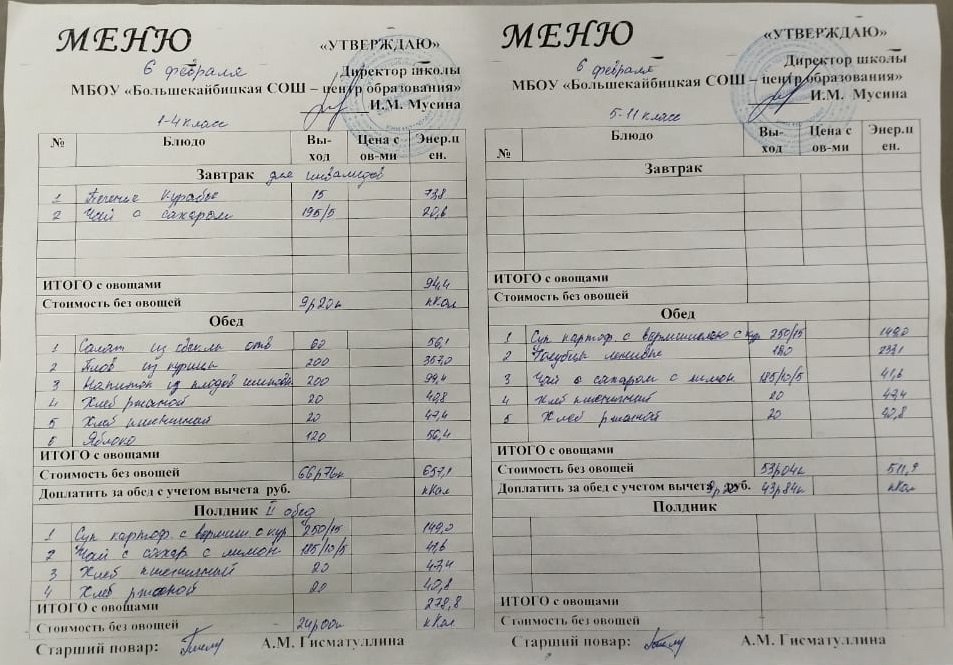 МЕНЮ
«УТВЕРЖДАЮ»
6 февраля
Директор школы
МБОУ «Большекайбицкая СОШ – центр образования»
И.М. Мусина
1-4 класс
№ Блюдо Вы-ход Цена с ов-ми Энер.ц ен.
Завтрак для инвалидов
1 Печенье Курабье 15 73,8
2 Чай с сахаром 195/5 20,6
ИТОГО с овощами 94,4
Стоимость без овощей 9р20к кКал
Обед
1 Салат из свеклы отв 60 56,1
2 Плов из курицы 200 357,0
3 Напиток из плодов шиповн 200 99,4
4 Хлеб ржаной 20 40,8
5 Хлеб пшеничный 20 47,4
6 Яблоко 120 56,4
ИТОГО с овощами
Стоимость без овощей 66р76к 657,1
Доплатить за обед с учетом вычета руб. кКал
Полдник II обед
1 Суп картоф. с вермиш с кур 250/15 149,0
2 Чай с сахар с лимон 185/10/5 41,6
3 Хлеб пшеничный 20 47,4
4 Хлеб ржаной 20 40,8
ИТОГО с овощами 278,8
Стоимость без овощей 24р00к кКал
Старший повар: А.М. Гисматуллина
МЕНЮ
«УТВЕРЖДАЮ»
6 февраля
Директор школы
МБОУ «Большекайбицкая СОШ – центр образования»
И.М. Мусина
5-11 класс
№ Блюдо Вы-ход Цена с ов-ми Энер.ц ен.
Завтрак
ИТОГО с овощами
Стоимость без овощей
Обед
1 Суп картоф. с вермишелью с кур 250/15 149,0
2 Голубцы ленивые 180 233,1
3 Чай с сахаром с лимон 185/10/5 41,6
4 Хлеб пшеничный 20 47,4
5 Хлеб ржаной 20 40,8
ИТОГО с овощами
Стоимость без овощей 53р04к 511,9
Доплатить за обед с учетом вычета 9р20 руб. 43р84к кКал
Полдник
ИТОГО с овощами
Стоимость без овощей
Старший повар: А.М. Гисматуллина